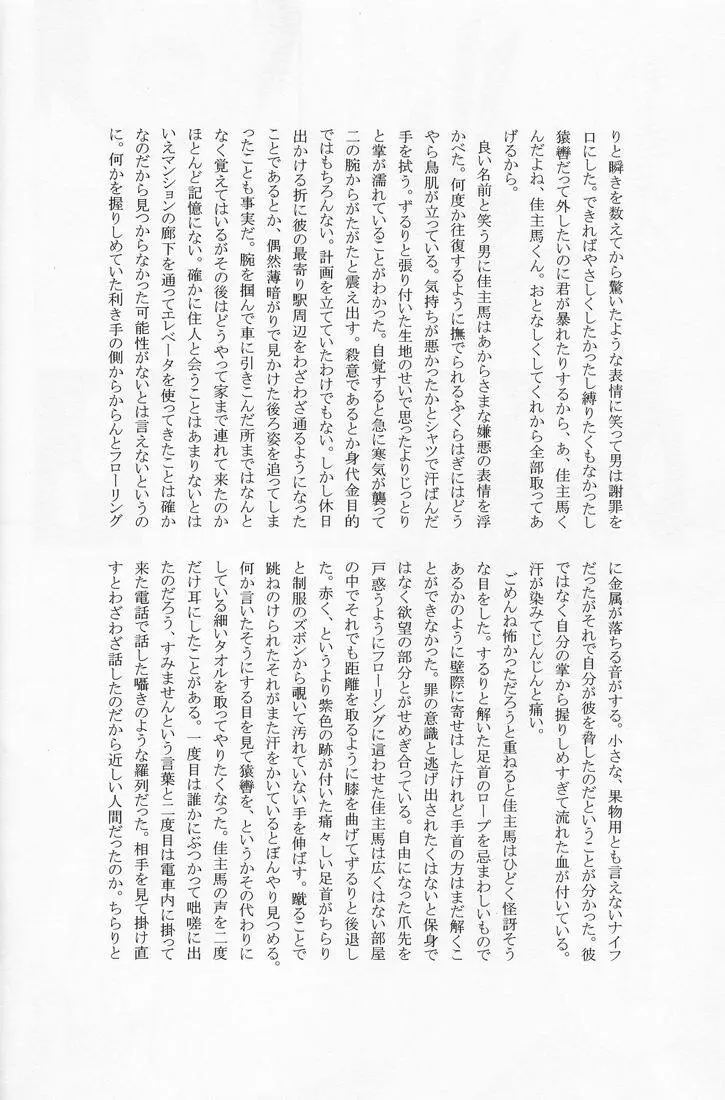 りと瞬きを数えてから驚いたような表情に笑って男は謝罪を
口にした。できればやさしくしたかったし縛りたくもなかったし
猿轡だって外したいのに君が暴れたりするから、あ、佳主馬く
んだよね、佳主馬くん。おとなしくしてくれから全部取ってあ
げるから。
良い名前と笑う男に佳主馬はあからさまな嫌悪の表情を浮
かべた。何度か往復するように撫でられるふくらはぎにはどう
やら鳥肌が立っている。気持ちが悪かったかとシャツで汗ばんだ
手を拭う。ずるりと張り付いた生地のせいで思ったよりじっとり
と掌が濡れていることがわかった。自覚すると急に寒気が襲って
二の腕からがたがたと震え出す。殺意であるとか身代金目的
ではもちろんない。計画を立てていたわけでもない。しかし休日
出かける折に彼の最寄り駅周辺をわざわざ通るようになった
ことであるとか、偶然薄暗がりで見かけた後ろ姿を追ってしま
ったことも事実だ。腕を掴んで車に引きこんだ所まではなんと
なく覚えてはいるがその後はどうやって家まで連れて来たのか
ほとんど記憶にない。確かに住人と会うことはあまりないとは
いえマンションの廊下を通ってエレベータを使ってきたことは確か
なのだから見つからなかった可能性がないとは言えないというの
に。何かを握りしめていた利き手の側からからんとフローリング
に金属が落ちる音がする。小さな、果物用とも言えないナイフ
だったがそれで自分が彼を脅したのだということが分かった。彼
ではなく自分の掌から握りしめすぎて流れた血が付いている。
汗が染みてじんじんと痛い。
ごめんね怖かっただろうと重ねると佳主馬はひどく怪訝そう
な目をした。するりと解いた足首のロープを忌まわしいもので
あるかのように壁際に寄せはしたけれど手首の方はまだ解くこ
とができなかった。罪の意識と逃げ出されたくはないと保身で
はなく欲望の部分とがせめぎ合っている。自由になった爪先を
戸惑うようにフローリングに這わせた佳主馬は広くはない部屋
の中でそれでも距離を取るように膝を曲げてずるりと後退し
た。赤く、というより紫色の跡が付いた痛々しい足首がちらり
と制服のズボンから覗いて汚れていない手を伸ばす。蹴ることで
跳ねのけられたそれがまた汗をかいているとぼんやり見つめる。
何か言いたそうにする目を見て猿轡を、というかその代わりに
している細いタオルを取ってやりたくなった。佳主馬の声を二度
だけ耳にしたことがある。一度目は誰かにぶつかって咄嗟に出
たのだろう、すみませんという言葉と二度目は電車内に掛って
来た電話で話した囁きのような羅列だった。相手を見て掛け直
すとわざわざ話したのだから近しい人間だったのか。ちらりと